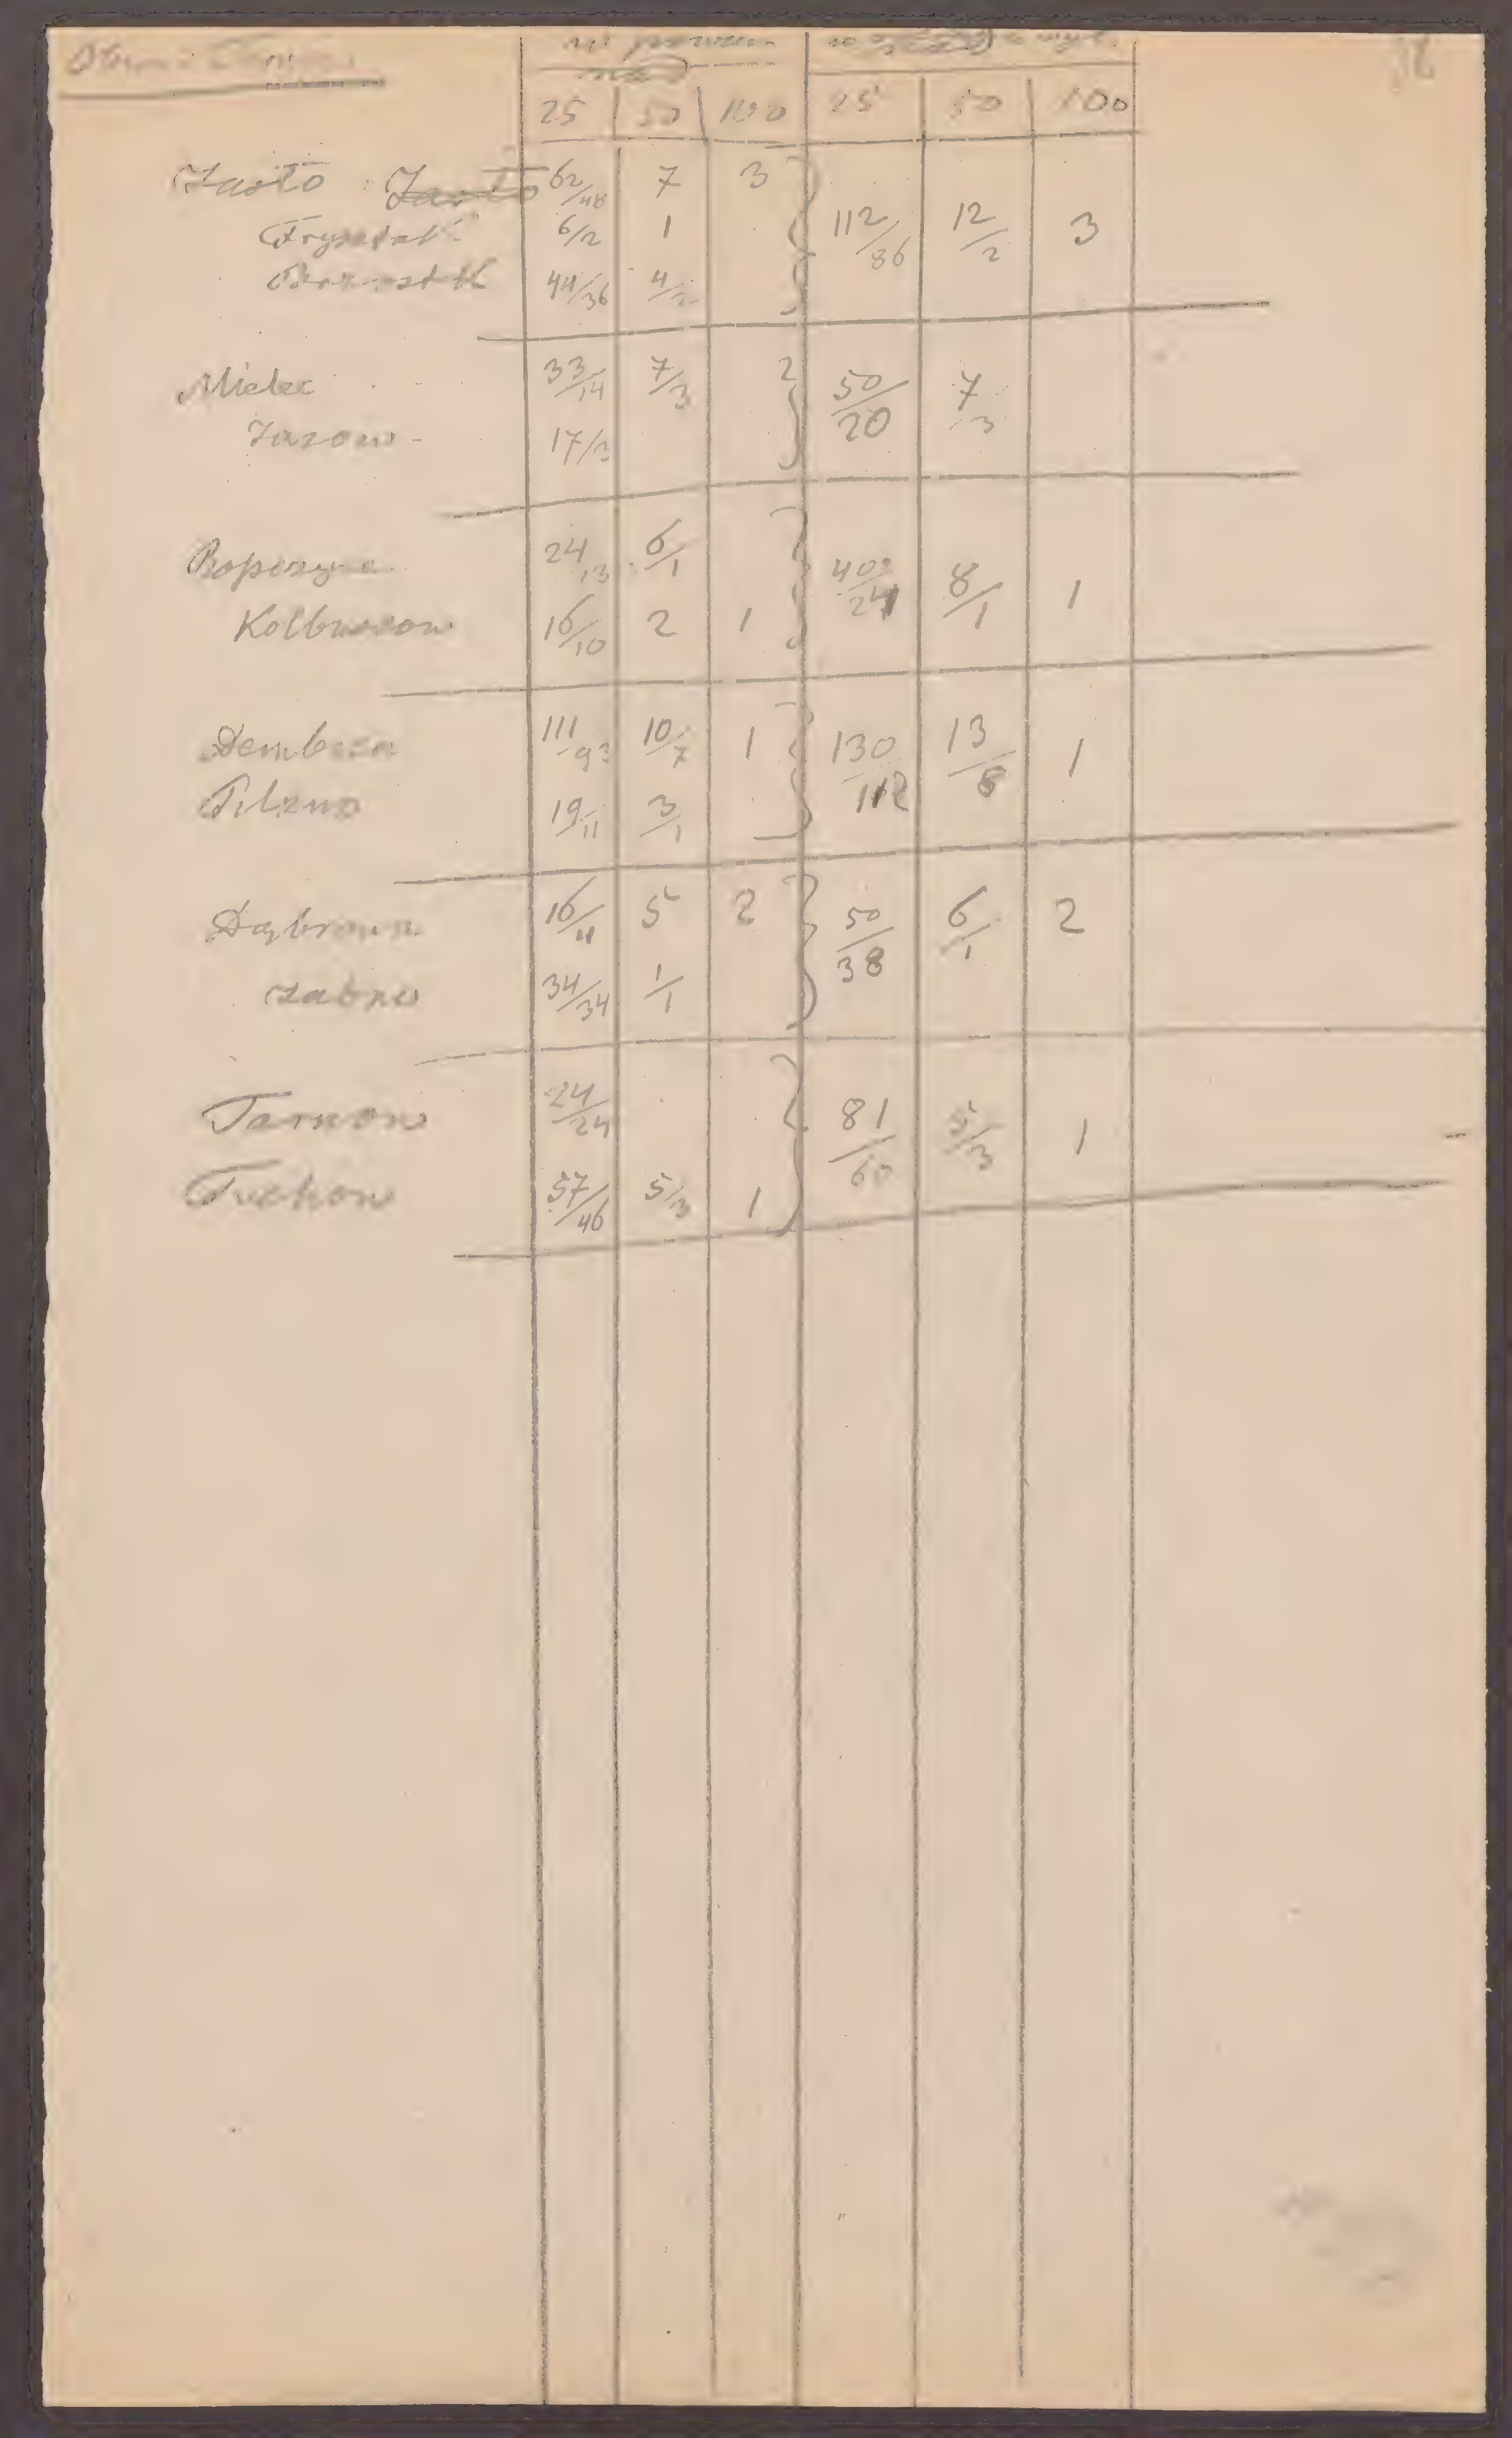 w powiec. w wyb.
nad nad
25 50 100 25 50 100
Jasło Jasło 62/48 7 3
Frysztak 6/2 1 112/86 12/2 3
Brzostek 44/36 4/2
Mielec 33/14 7/3 50/20 7/3
17/3
Ropczyce 24/13 6/1 40/24 8/1 1
Kolbuszow 16/10 2 1
Dembica 111/93 10/7 1 130/112 13/8 1
Pilzno 19/11 3/1
Dąbrowa 16/4 5 2 50/38 6/1 2
Żabno 34/34 1/1
Tarnow 24/24 81/60 5/3 1
Tuchow 57/46 5/3 1